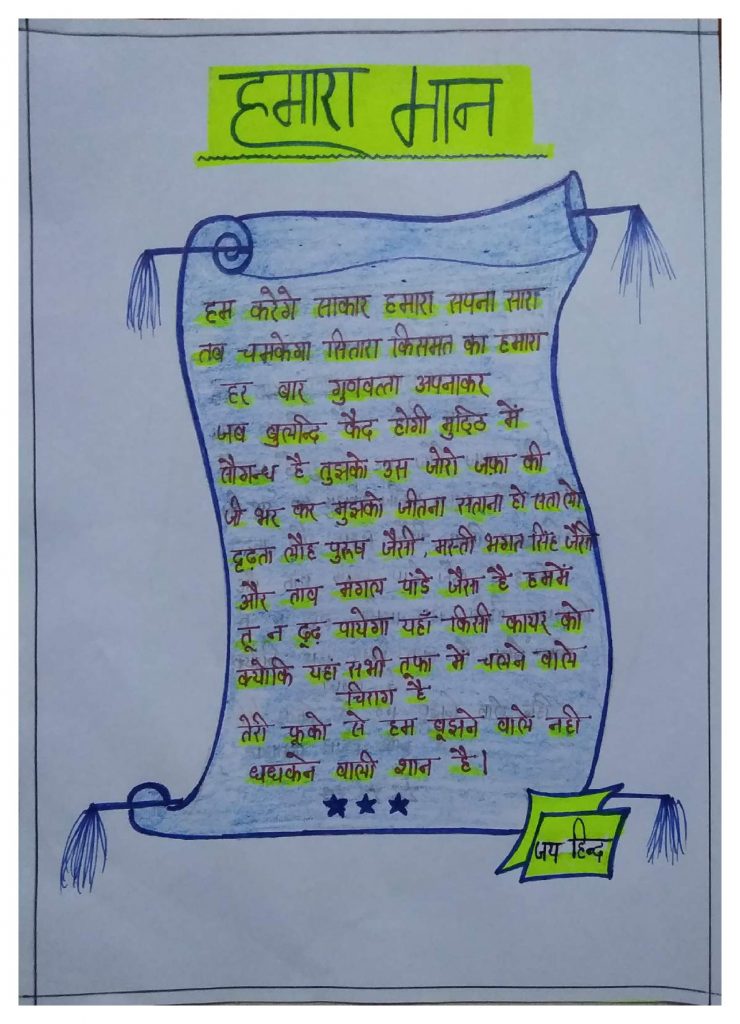 हमारा मान
हम करेगे साकार हमारा सपना सारा
तब चमकेगा सितारा किसमत का हमारा
हर बार गुणवत्ता अपनाकर
जब बुलन्दि कैद होगी मुठ्ठि में
सौगन्ध है तुझको उस जोरो जफ़ा की
जी भर कर मुझको जीतना सताना हो सतालो
दृढ़ता लौह पुरुष जैसी, मस्ती भगत सिंह जैसी
और ताव मंगल पांडे जैसा है हममें
तू न ढूढ़ पायेगा यहाँ किसी कायर को
क्योकि यहां सभी तूफा में चलने वाले
चिराग है
तेरी फूको से हम बूझने वाले नही
धधकेन वाली शान है।
जय हिन्द